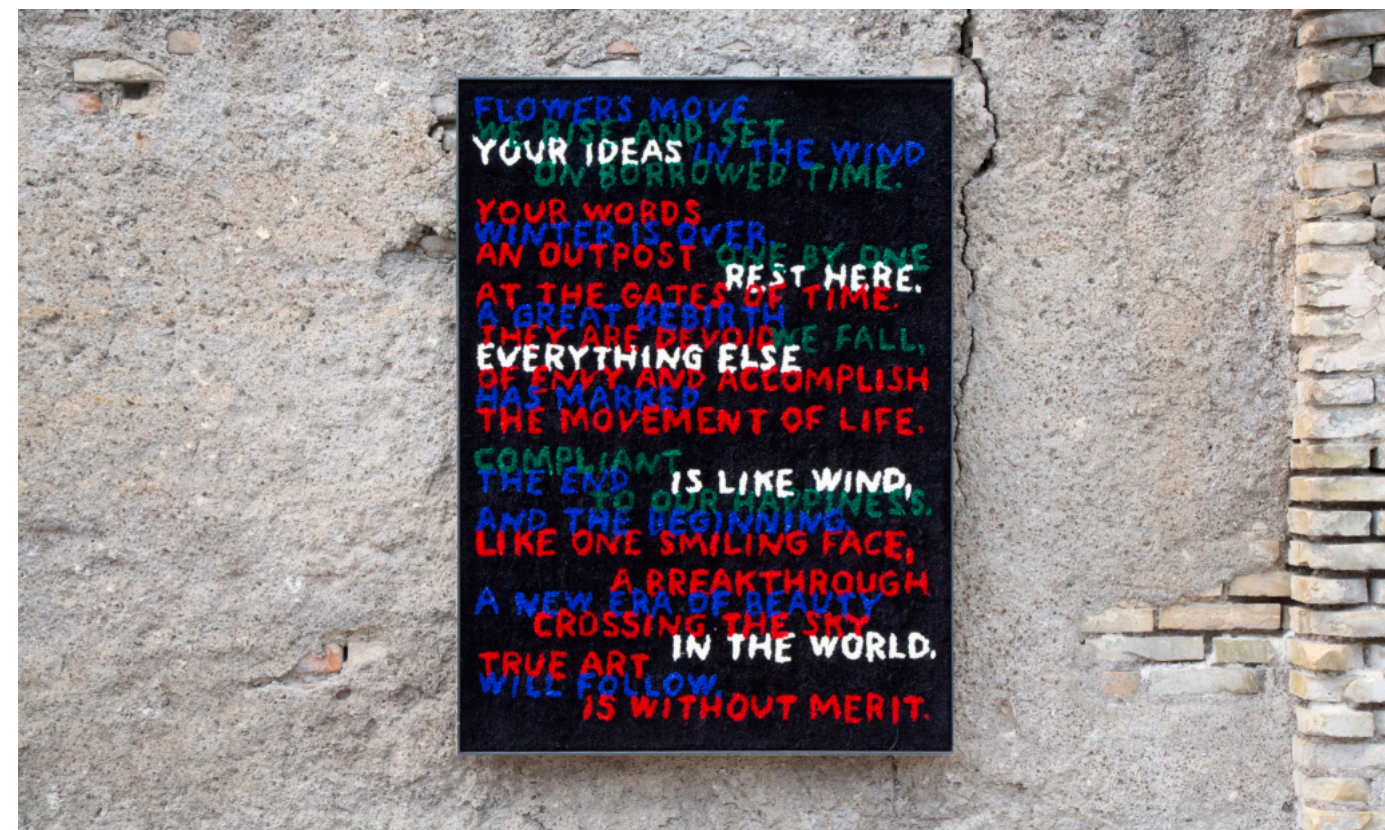 FLOWERS MOVE
WE RISE AND SET
YOUR IDEAS IN THE WIND
ON BORROWED TIME.
YOUR WORDS
WINTER IS OVER
AN OUTPOST ONE BY ONE
REST HERE.
AT THE GATES OF TIME.
A GREAT REBIRTH
THEY ARE DEVOID WE FALL,
EVERYTHING ELSE
OF ENVY AND ACCOMPLISH
HAS MARKED
THE MOVEMENT OF LIFE.
COMPLIANT
THE END IS LIKE WIND,
TO OUR HAPPINESS.
AND THE BEGINNING.
LIKE ONE SMILING FACE,
A BREAKTHROUGH
A NEW ERA OF BEAUTY
CROSSING THE SKY
IN THE WORLD.
TRUE ART
WILL FOLLOW.
IS WITHOUT MERIT.